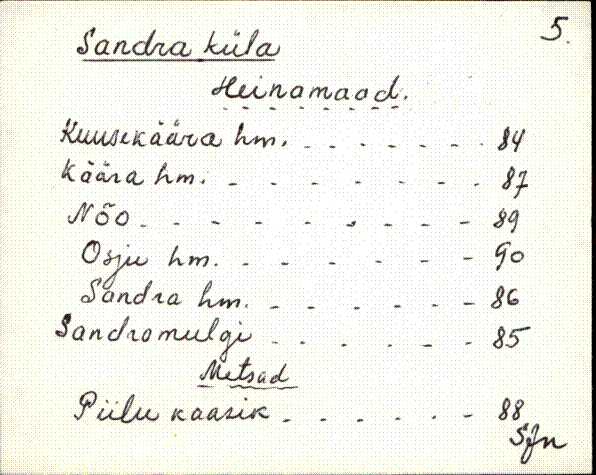 5.
Sandra küla
Heinamaad.
Kuusekäära hm. - - - - - - 84
Käära hm. - - - - - - - 87
Nõo - - - - - - - - - 89
Osju hm. - - - - - - 90
Sandra hm. - - - - - - 86
Sandramulgi - - - - - - 85
Metsad
Piilu kaasik - - - - - 88